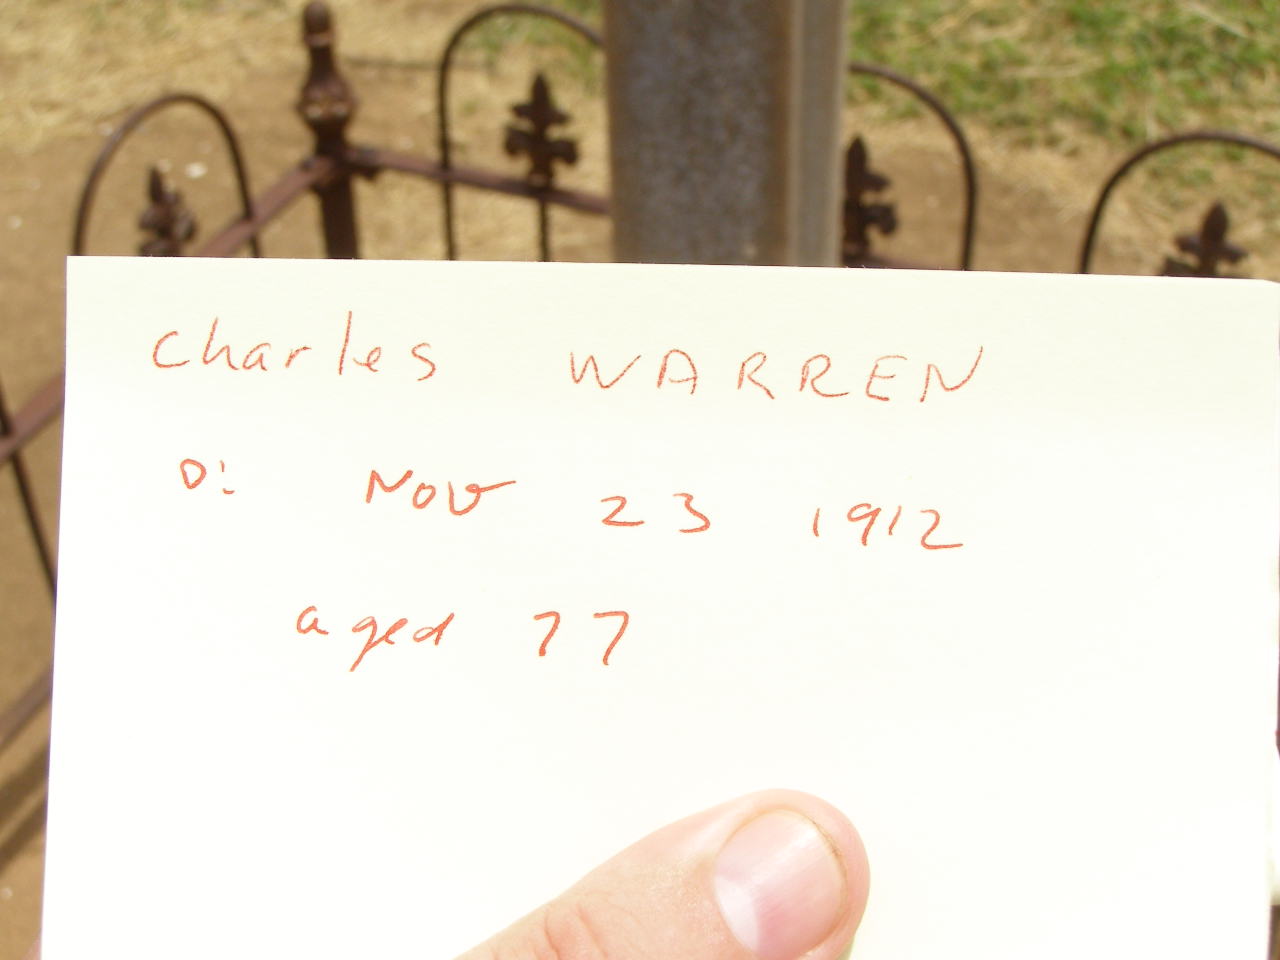 Charles WARREN
D: Nov 23 1912
aged 77